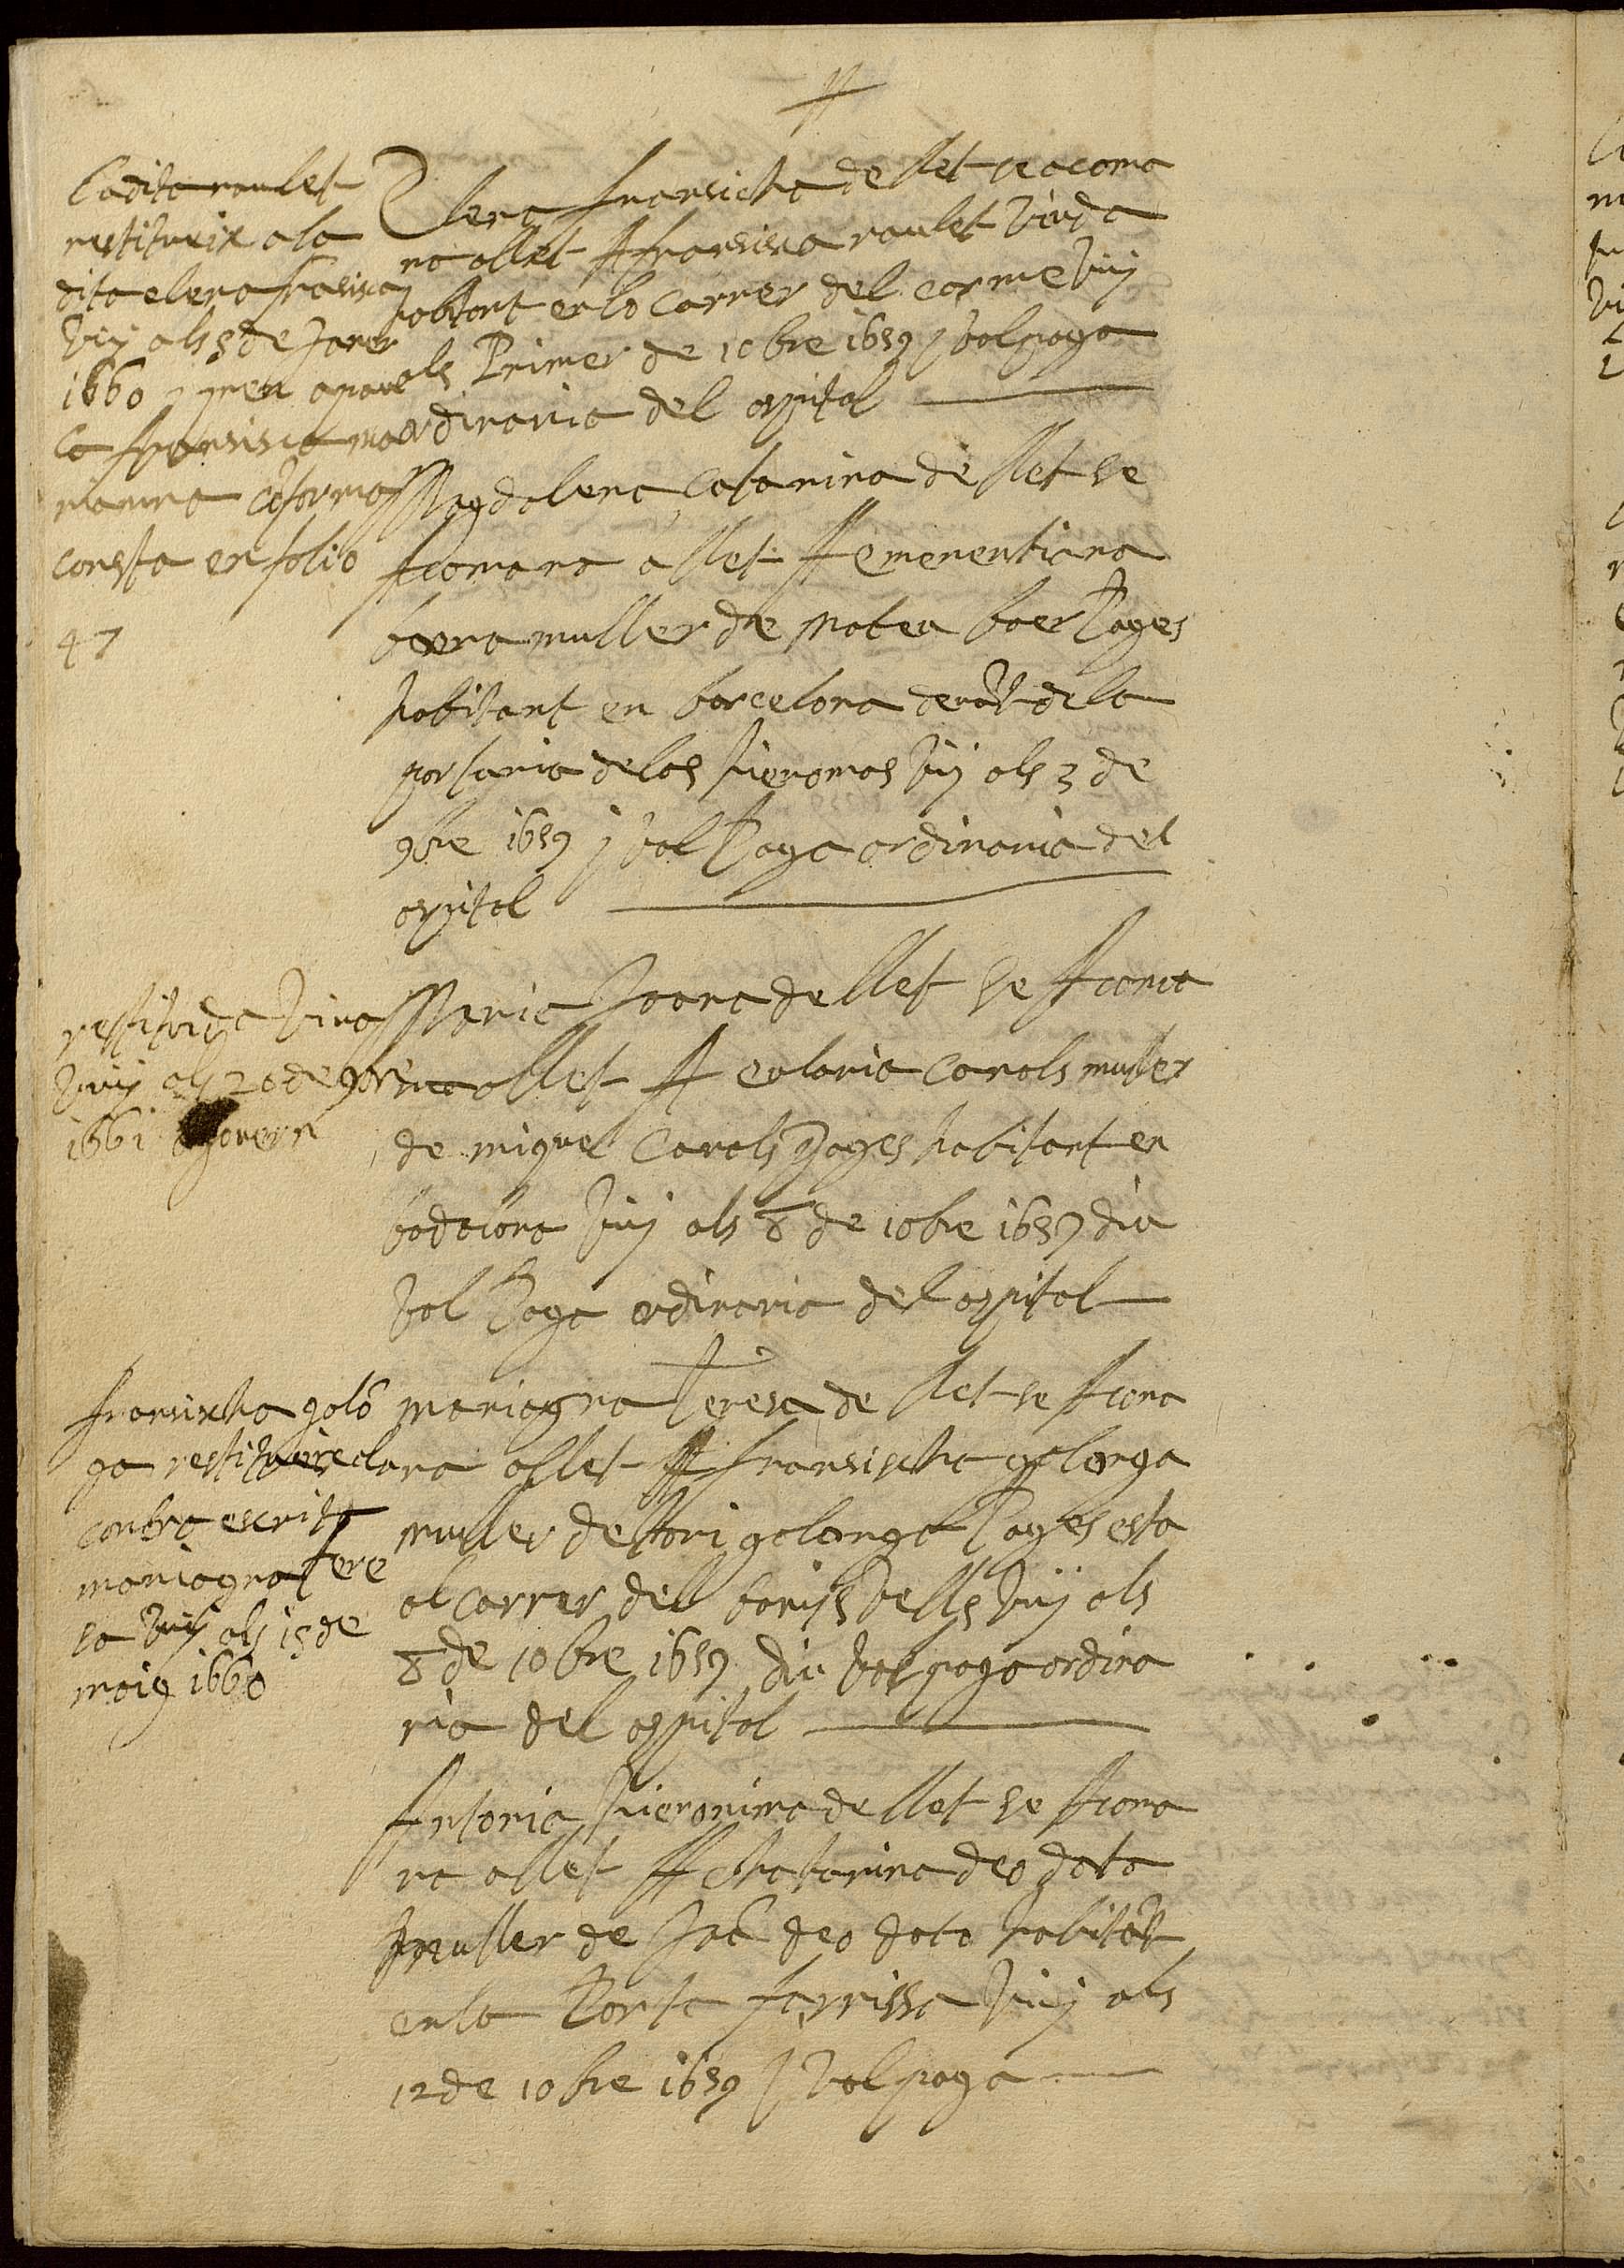 Elena fransischa de llet se acoma
na a llet A fransisca raulet viuda
habitant en lo carrer del carme vuy
als Primer de 10bre 1659 y vol paga
ordinaria del ospital
Magdalena Catarina de llet se
Acomana a llet A emerentiana
boera muller de Mateu boer Pages
habitant en barcelona devāt de la
portaria de las Hieronimas vuy als 3 de
9bre 1659 y vol Paga ordinaria del
ospital
Maria Joana de llet se Acoma
na a llet A eularia Carols muller
de miquel Carols Pages habitant en
badalona vuy als 8 de 10bre 1659 diu
vol Paga ordinaria del ospital
mariagna Teresa de llet se Acoma
na a llet A fransischa galonga
muller de Hari galonga Pages esta
al carrer dels banys vells vuy als
8 de 10bre 1659 diu vol paga ordina
ria del ospital
Antonia Hieronima de llet se Acoma
na a llet A Chatarina deodata
muller de Joā deodata habitāt
en la Porta farrissa vuy als
12 de 10bre 1659 y vol paga
La dita raulet
restitueix a la
dita elena fransisca
vuy als 5 de Janer
1660 y pren a
la fransisca ma
rianna cōforma
consta en folio
47
restituida viva
vuy als 20 de 9bre
1661 a govern
fransischa galō
ga restitueix la
contra escrita
mariagna Tere
sa vuy als 15 de
maig 1660